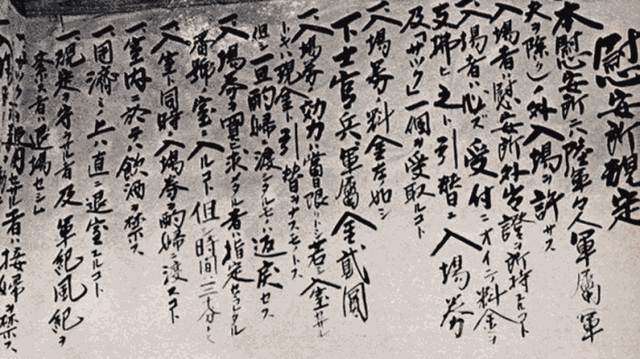 慰安所規定
本慰安所ニハ陸軍々人軍属(軍
夫ヲ除ク)ノ外入場ヲ許サス
入場者ハ慰安所外出證ヲ所持スルコト
入場者ハ必ズ受付ニオイテ料金ヲ
支拂ヒ之ト引替ニ入場券
及「サック」一個ヲ受取ルコト
入場券ノ料金左ノ如シ
下士官兵軍属金貳圓
一、入場券ノ効力ハ當日限リトシ若シ入室セザル
トキハ現金ト引替ヲナスモトス
但シ一旦酌婦ニ渡シタルモノハ返戻セス
一、入場券ヲ買ヒ求メタル者ハ指定セラレタル
番號ノ室ニ入ルコト但シ時間ハ三十分トス
一、入室ト同時ニ入場券ヲ酌婦ニ渡スコト
一、室内ニ於テハ飲酒ヲ禁ス
一、用済ミノ上ハ直ニ退室スルコト
一、規定ヲ守ラサル者及軍紀風紀ヲ
紊ス者ハ退場セシム
一、サックヲ使用セザル者ハ接婦ヲ禁ス